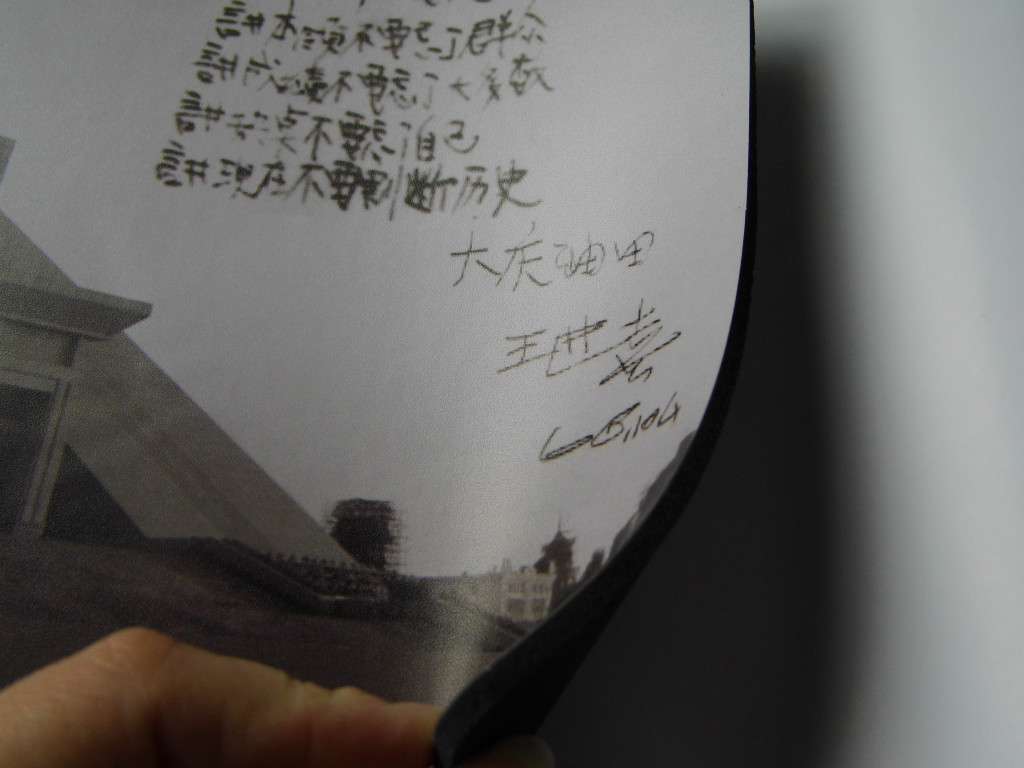 讲本领不要忘了群众
讲成绩不要忘了大多数
讲缺点不要忘自己
讲现在不要割断历史
大庆油田
王进喜